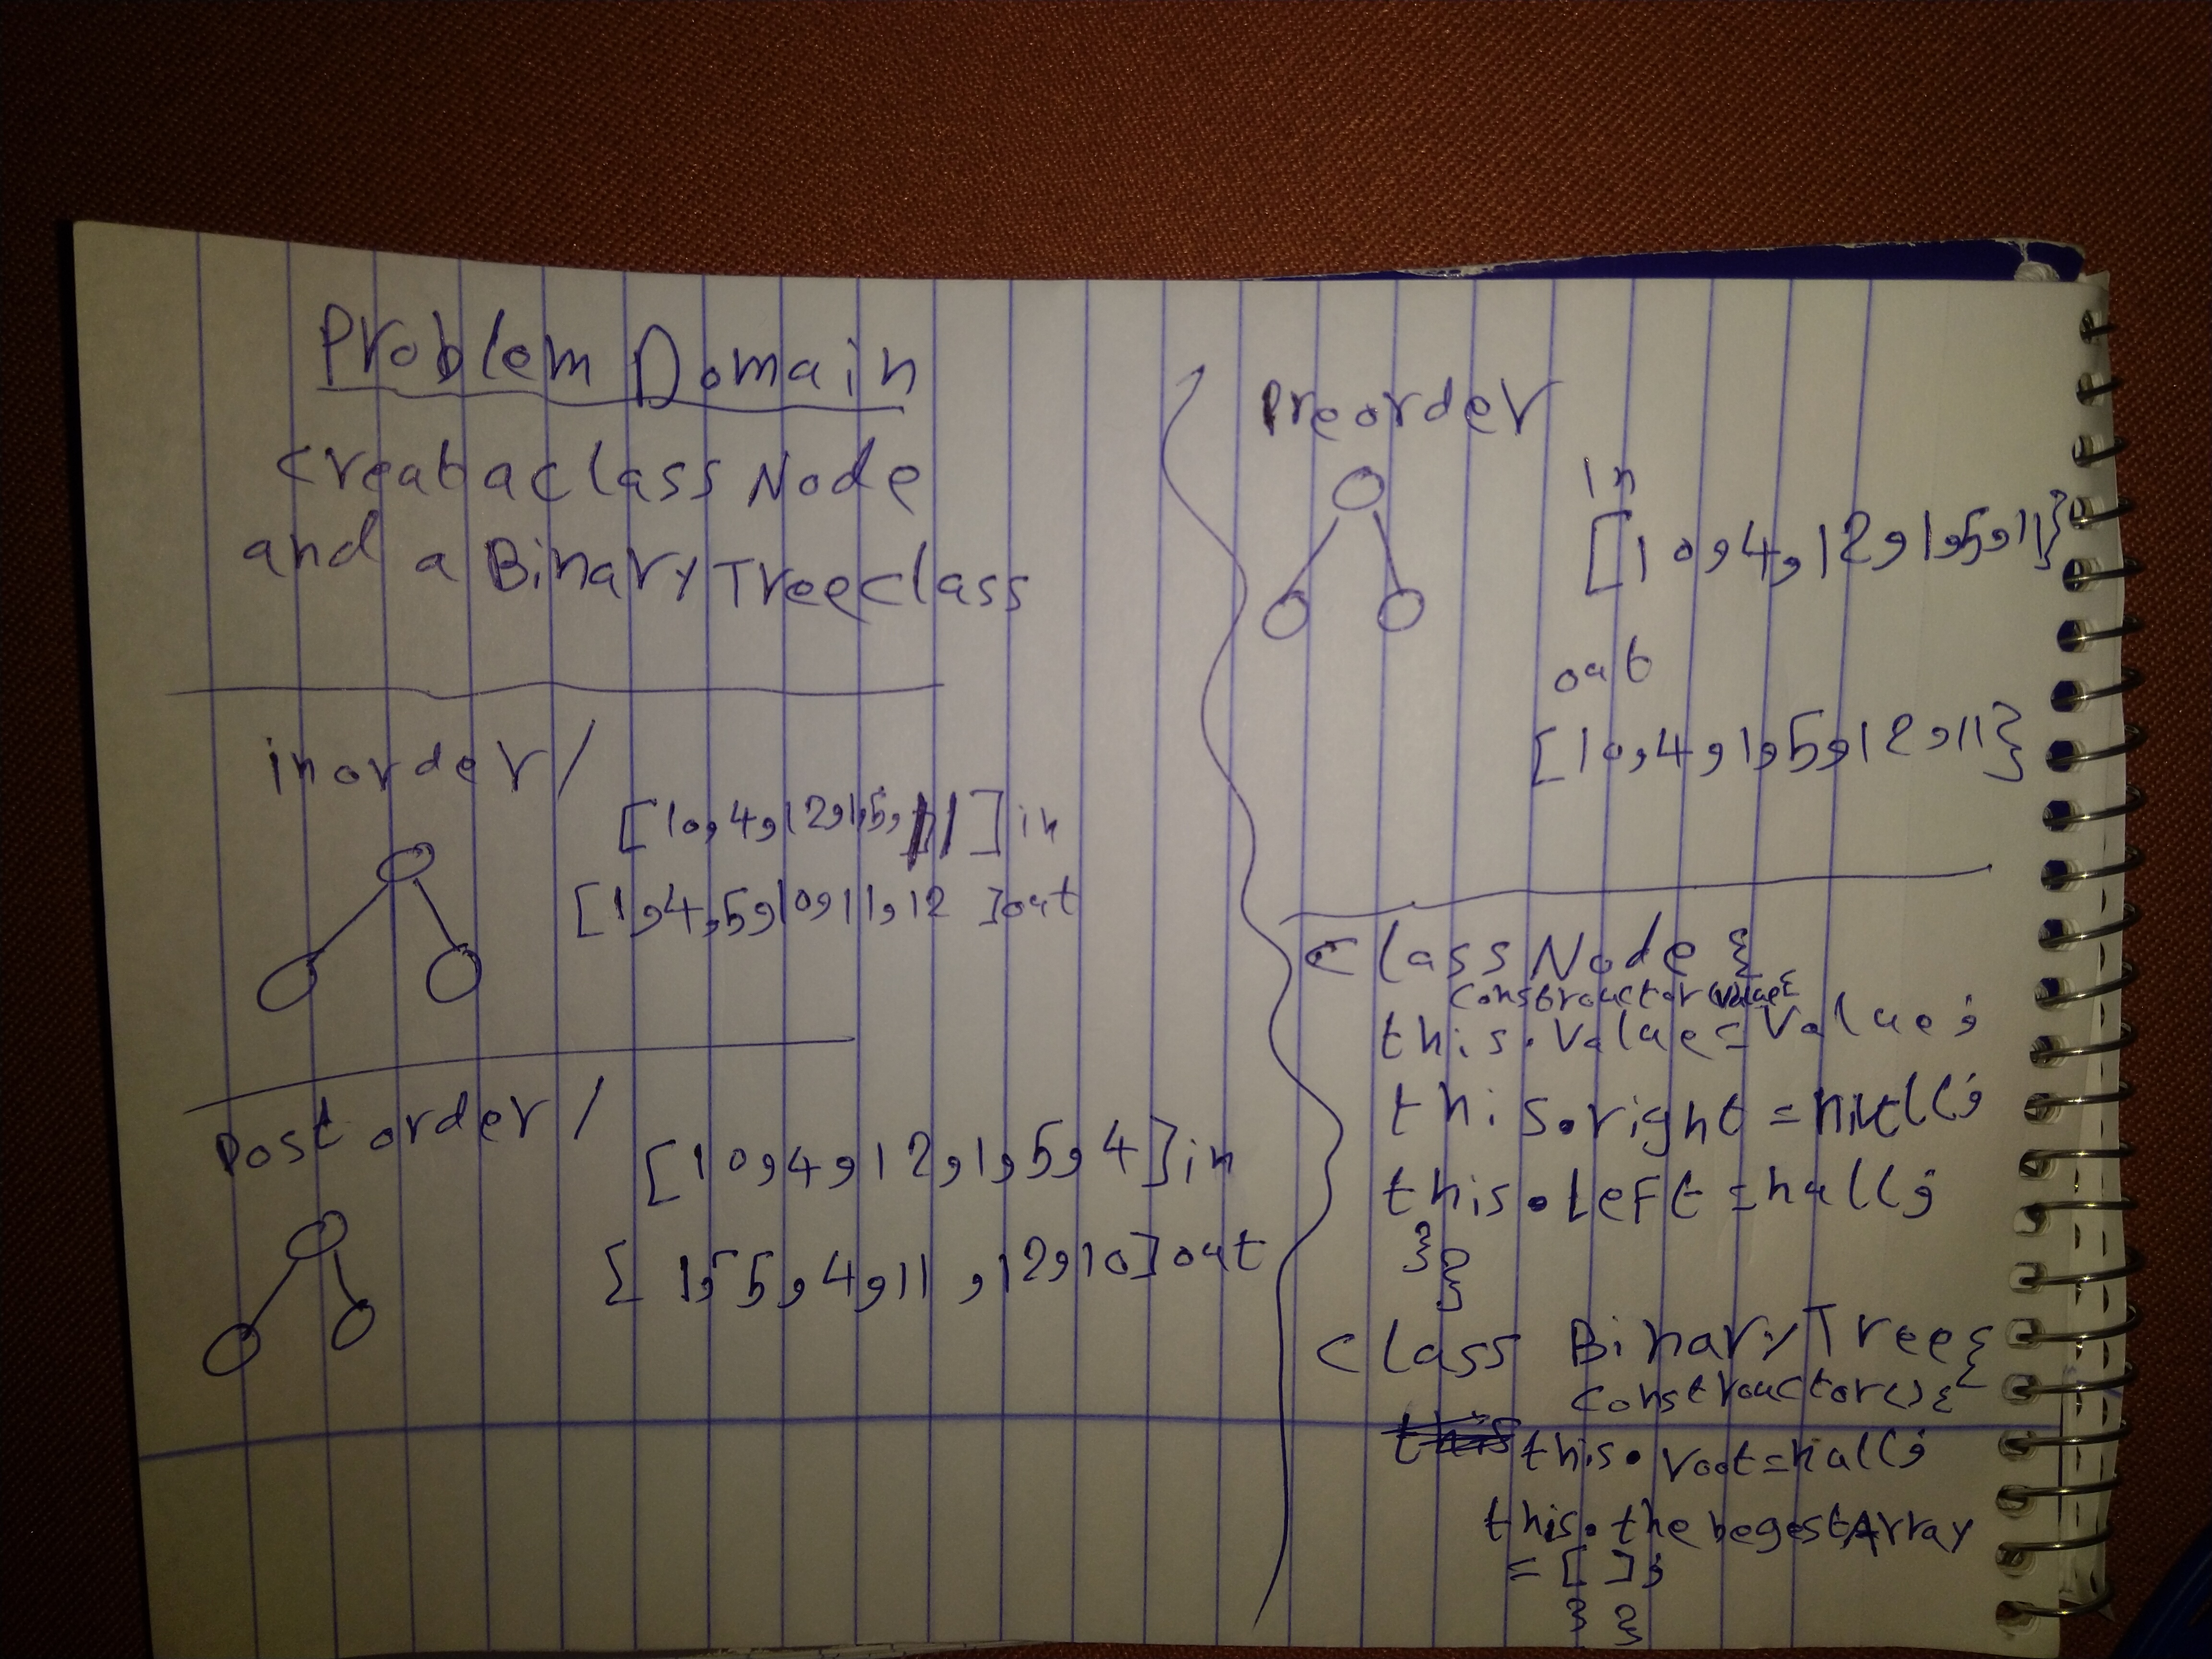 Problem Domain
creat a class Node
and a BinaryTreeclass
inorder/
[10,4,12,1,5,11]in
[1,4,5,10,11,12]out
Post order/
[10,4,12,1,5,4]in
[1,5,4,11,12,10]out
Preorder
in
[10,4,12,1,5,11]
out
[10,4,1,5,12,11]
class Node {
constructor(value{
this.value=value;
this.right=null;
this.left=null;
}}
class BinaryTree{
constructor(){
this.root=null;
this.thebegestArray
=[];
}}